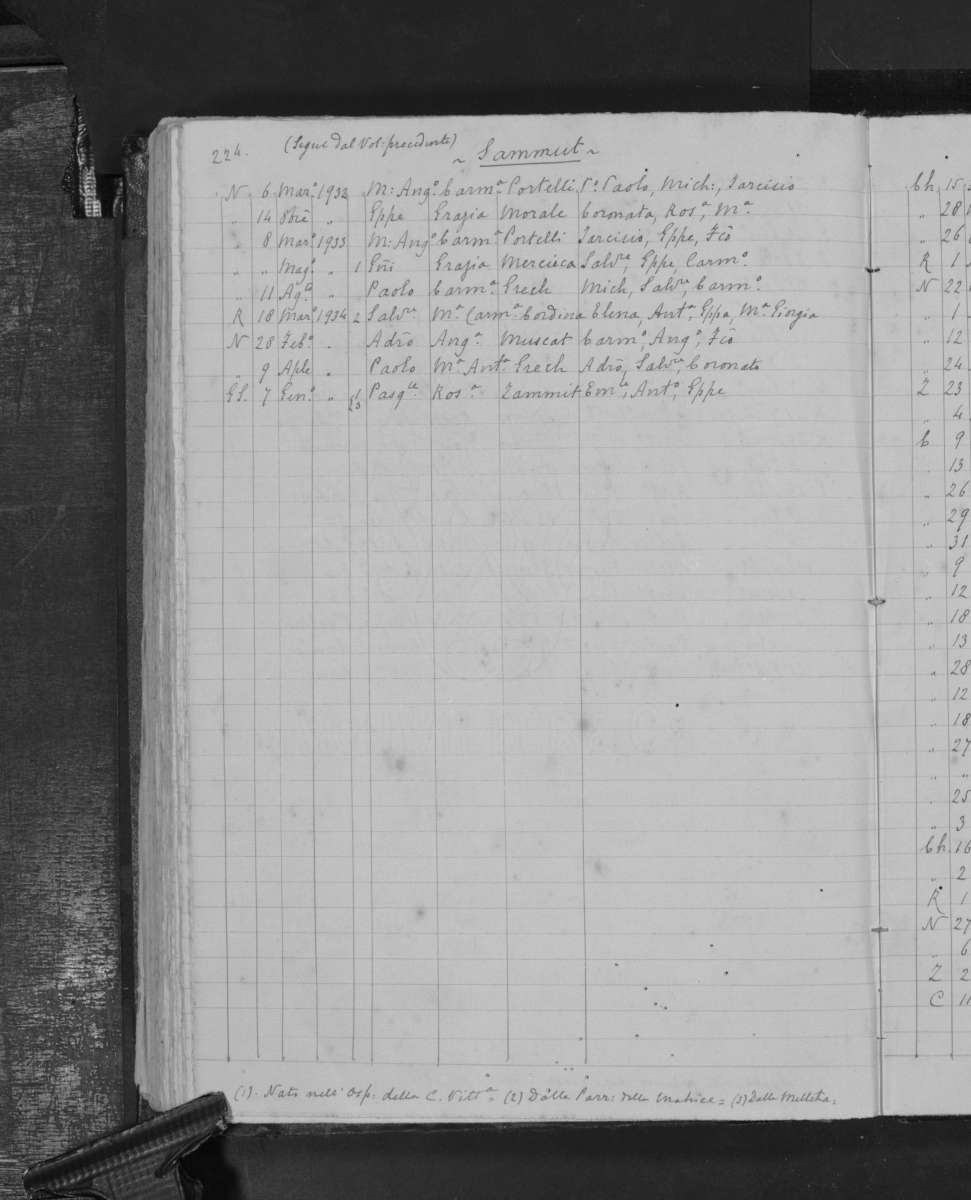 224. (Segue dal Vol: precedente)
~ Sammut ~
N 6 Mar.o 1932 M: Ang.o Carm.a Portelli P.o Paolo, Mich:, Tarcisio
" 14 8bre " Eppe Grazia Morale Coronata, Ros.a, M.a
" 8 Mar.o 1933 M: Ang.o Carm.a Portelli Tarcisio, Eppe, Fcō
" " Mag.o " 1 Grazia Mercieca Salv.re, Eppe, Carm.o
" 11 Ag.to " Paolo Carm.a Grech Mich, Salv.re, Carm.o
R 18 Mar.o 1934 2 Salv.re M.a Carm.a Cordina Elena, Ant.a, Eppa, M.a Giorgia
N 28 Feb.o " Adrō Ang.a Muscat Carm.o, Ang.o, Fcō
" 9 Aple " Paolo M.a Ant.a Grech Adrō, Salv.re, Coronato
GS. 7 Gen.o " 1/23 Pasq.le Ros.a Zammit Em.le, Ant.o, Eppe
(1). Nato nell' Osp: della C. Vitt.a = (2) Dalla Parr: della Matrice = (3) Dalla Melleha =
Ch. 15
" 28
" 26
R 1
N 22
" 1
" 12
" 24
Z 23
" 4
C 9
" 13
" 26
" 29
" 31
" 9
" 12
" 18
" 13
" 28
" 12
" 18
" 27
" "
" 25
" 3
Ch. 16
" 2
R 1
N 27
" 6
Z 2
C 11